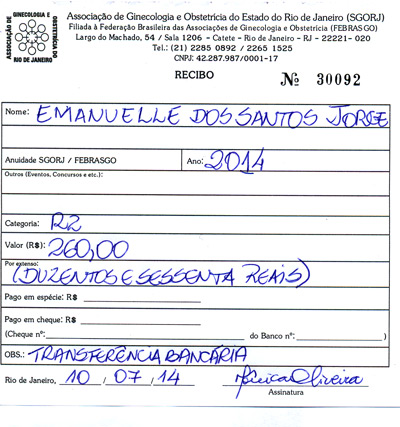 GINECOLOGIA E OBSTETRÍCIA DO ESTADO DO RIO DE JANEIRO ASSOCIAÇÃO DE
Associação de Ginecologia e Obstetrícia do Estado do Rio de Janeiro (SGORJ)
Filiada à Federação Brasileira das Associações de Ginecologia e Obstetrícia (FEBRASGO)
Largo do Machado, 54 / Sala 1206 - Catete - Rio de Janeiro - RJ - 22221- 020
Tel.: (21) 2285 0892 / 2265 1525
CNPJ: 42.287.987/0001-17
RECIBO Nº 30092
Nome: EMANUELLE DOS SANTOS JORGE
Anuidade SGORJ / FEBRASGO Ano: 2014
Outros (Eventos, Concursos e etc.):
Categoria: R2
Valor (R$): 260,00
Por extenso: (DUZENTOS E SESSENTA REAIS)
Pago em espécie: R$
Pago em cheque: R$
(Cheque nº: do Banco nº: )
OBS.: TRANSFERÊNCIA BANCÁRIA
Rio de Janeiro, 10 / 07 / 14
Assinatura